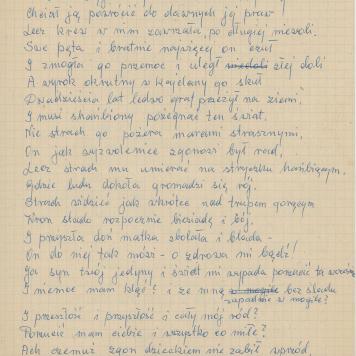 Chciał ją powrócić do dawnych jej praw!
Lecz krew w nim zawrzała, po długiej niewoli.
Swe pęta i bratnie najwięcej on czuł
I zmogła go przemoc i uległ złej doli
A wyrok okrutny w kajdany go skuł
Dwadzieścia lat ledwo graf przeżył na ziemi,
I musi shańbiony pożegnać ten świat,
Nie strach go pożera marami strasznymi,
On jak wyzwoleniec zgonowi był rad,
Lecz strach mu umierać na stryczku hańbiącym,
Gdzie ludu dokoła gromadzi się rój,
Strach widzieć jak wkrótce nad trupem gorącym
Wron stado rozpocznie biesiadę i bój,
I przyszła doń matka zbolała i blada -
On do niej tak mówi - o zdrowa mi bądź!
Ja syn twój jedyny i świat mi wypada porzucić tą
I niemoc mam i ze mną w mogile bez śladu
zapadnie w mogile?
I przeszłość i przyszłość i cały mój ród?
Porzucić mam ciebie i wszystko co miłe?
Ach czemuż zgon dzieckiem nie zabił wprzód